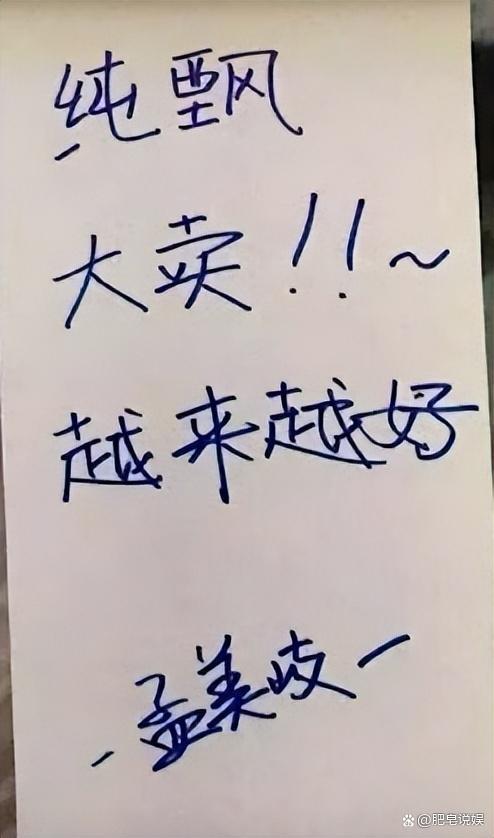 纯飘
大卖!!~
越来越好
孟美岐
@肥皂说娱